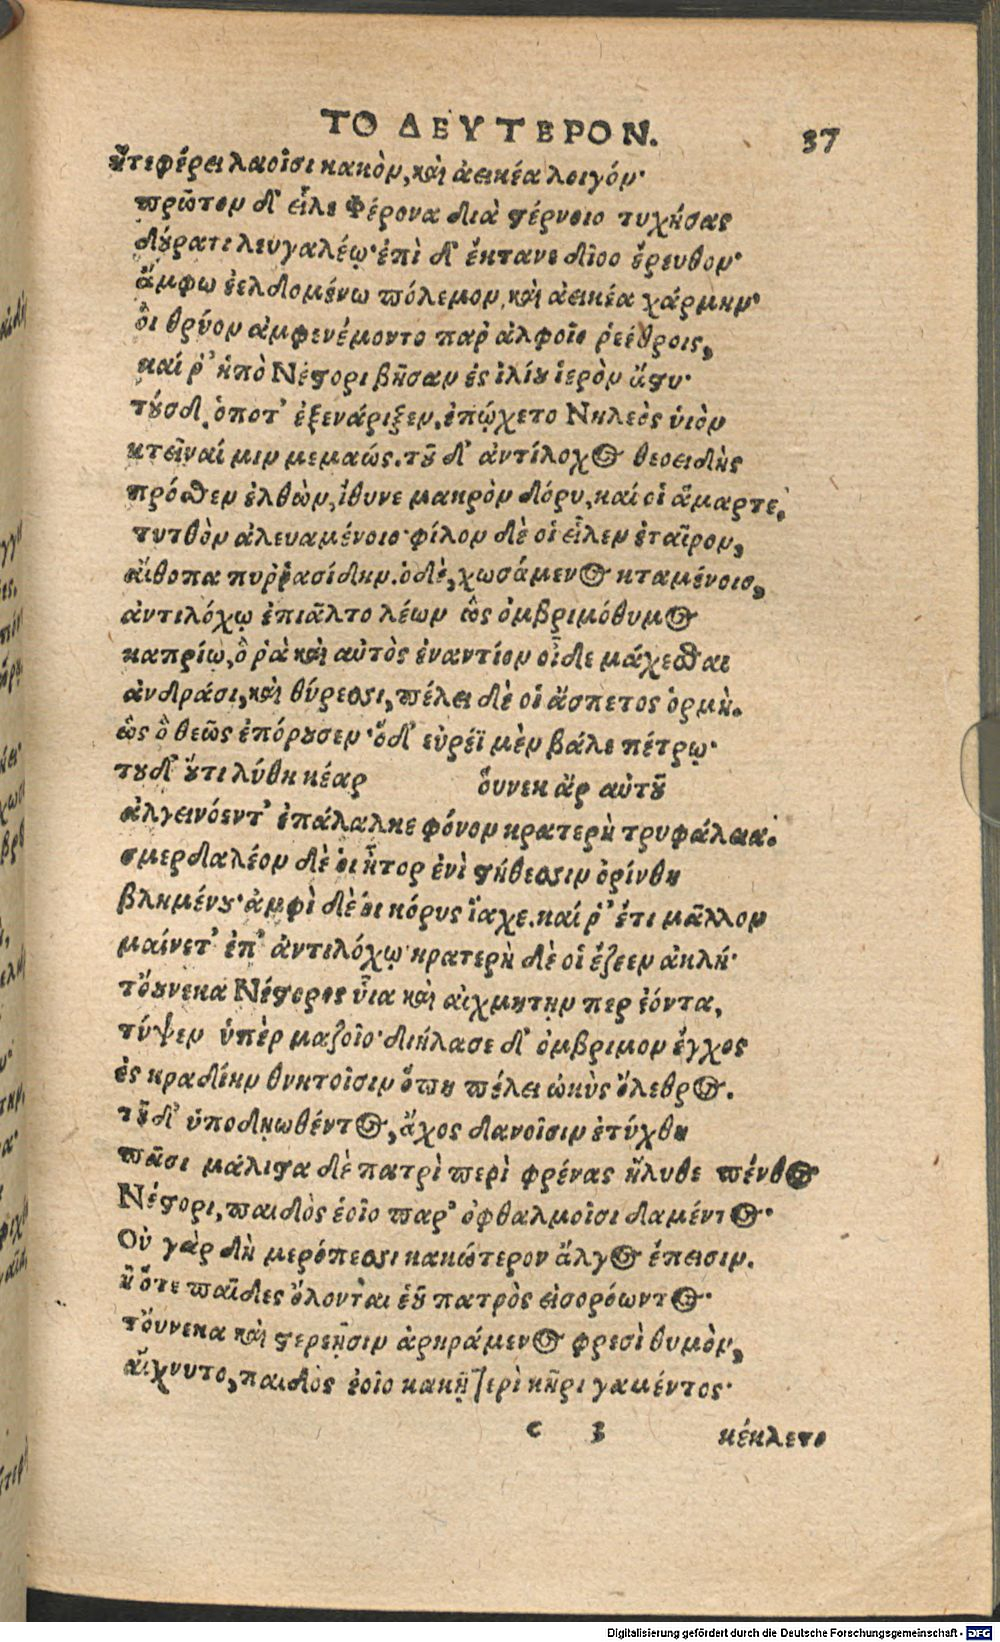 ΤΟ ΔΕΥΤΕΡΟΝ. 37
ἥτεφέρει λαοῖσι κακὸν, καὶ ἀεικέα λοιγόν·
πρῶτον δ' εἷλε Φέρονα διὰ στέρνοιο τυχήσας
δούρατι λευγαλέῳ· ἐπὶ δ' ἔκτανε δῖοο ἔρευθον·
ἄμφω ἐελδομένω πόλεμον, καὶ ἀεικέα χάρμην·
οἳ θρύον ἀμφενέμοντο παρ ἀλφοῖο ῥεέθροις,
καί ῥ' ὑπὸ Νέστορι βῆσαν ἐς ἰλίου ἱερὸν ἄστυ·
τούσδ, ὁποτ' ἐξενάριξεν, ἐπῴχετο Νηλεὸς ὑιὸν
κτεῖναί μιν μεμαώς. τοῦ δ' ἀντίλοχος θεοειδὴς
πρόσθεν ἐλθὼν, ἴθυνε μακρὸν δόρυ, καί οἱ ἅμαρτε,
τυτθὸν ἀλευαμένοιο· φίλον δὲ οἱ εἷλεν ἑταῖρον,
αἴθοπα πυῤῥασίδην. ὁ δὲ, χωσάμενος κταμένοιο,
ἀντιλόχῳ ἐπιᾶλτο λέων ὣς ὀμβριμόθυμος
καπρίῳ, ὅ ῥὰ καὶ αὐτὸς ἐναντίον οἶδε μάχεσθαι
ἀνδράσι, καὶ θύρεσσι, πέλει δὲ οἱ ἄσπετος ὁρμὴ.
ὣς ὃ θεῶς ἐπόρουσεν· ὅδ' εὐρέϊ μὲν βάλε πέτρῳ·
τουδ' οὔτι λύθη κέαρ οὕνεκ ἂρ αὐτοῦ
ἀλγεινόεντ' ἐπάλαλκε φόνον κρατερὴ τρυφάλεια·
σμερδαλέον δὲ οἱ ἦτορ ἐνὶ στήθεσσιν ὀρίνθη
βλημένου· ἀμφὶ δὲ οἱ κόρυς ἴαχε. καί ῥ' ἔτι μᾶλλον
μαίνετ' ἐπ' ἀντιλόχῳ· κρατερὴ δὲ οἱ ἔζεεν ἀκλή·
τὄυνεκα Νέστορος ὗια καὶ αἰχμητην περ ἐόντα,
τύψεν ὑπὲρ μαζοῖο· διήλασε δ' ὀμβριμον ἔγχος
ἐς κραδίην θνητοῖσιν ὅπη πέλει ὠκὺς ὄλεθρος.
τοῦδ' ὑποδῃωθέντος, ἄχος δανοῖσιν ἐτύχθη
πᾶσι μάλιστα δὲ πατρὶ περὶ φρένας ἤλυθε πένθος
Νέστορι, παιδὸς ἑοῖο παρ' ὀφθαλμοῖσι δαμέντος·
Οὐ γὰρ δὴ μερόπεσσι κακώτερον ἄλγος ἔπεισιν.
ἢ ὅτε παῖδες ὄλονται ἑοῦ πατρὸς εἰσορόωντος·
τὄυνεκα καὶ στερεῇσιν ἀρηράμενος φρεσὶ θυμὸν,
αἴχνυτο, παιδὸς ἑοῖο κακῇ περὶ κῆρι γαμέντος·
c 3 κέκλετο
Digitalisierung gefördert durch die Deutsche Forschungsgemeinschaft - DFG